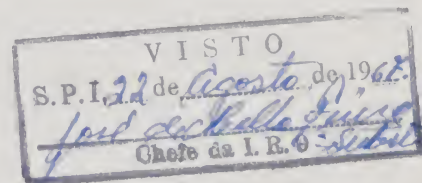 VISTO
S.P.I, 22 de Agosto de 1967.
José de Mello
Chefe da I. R. 9